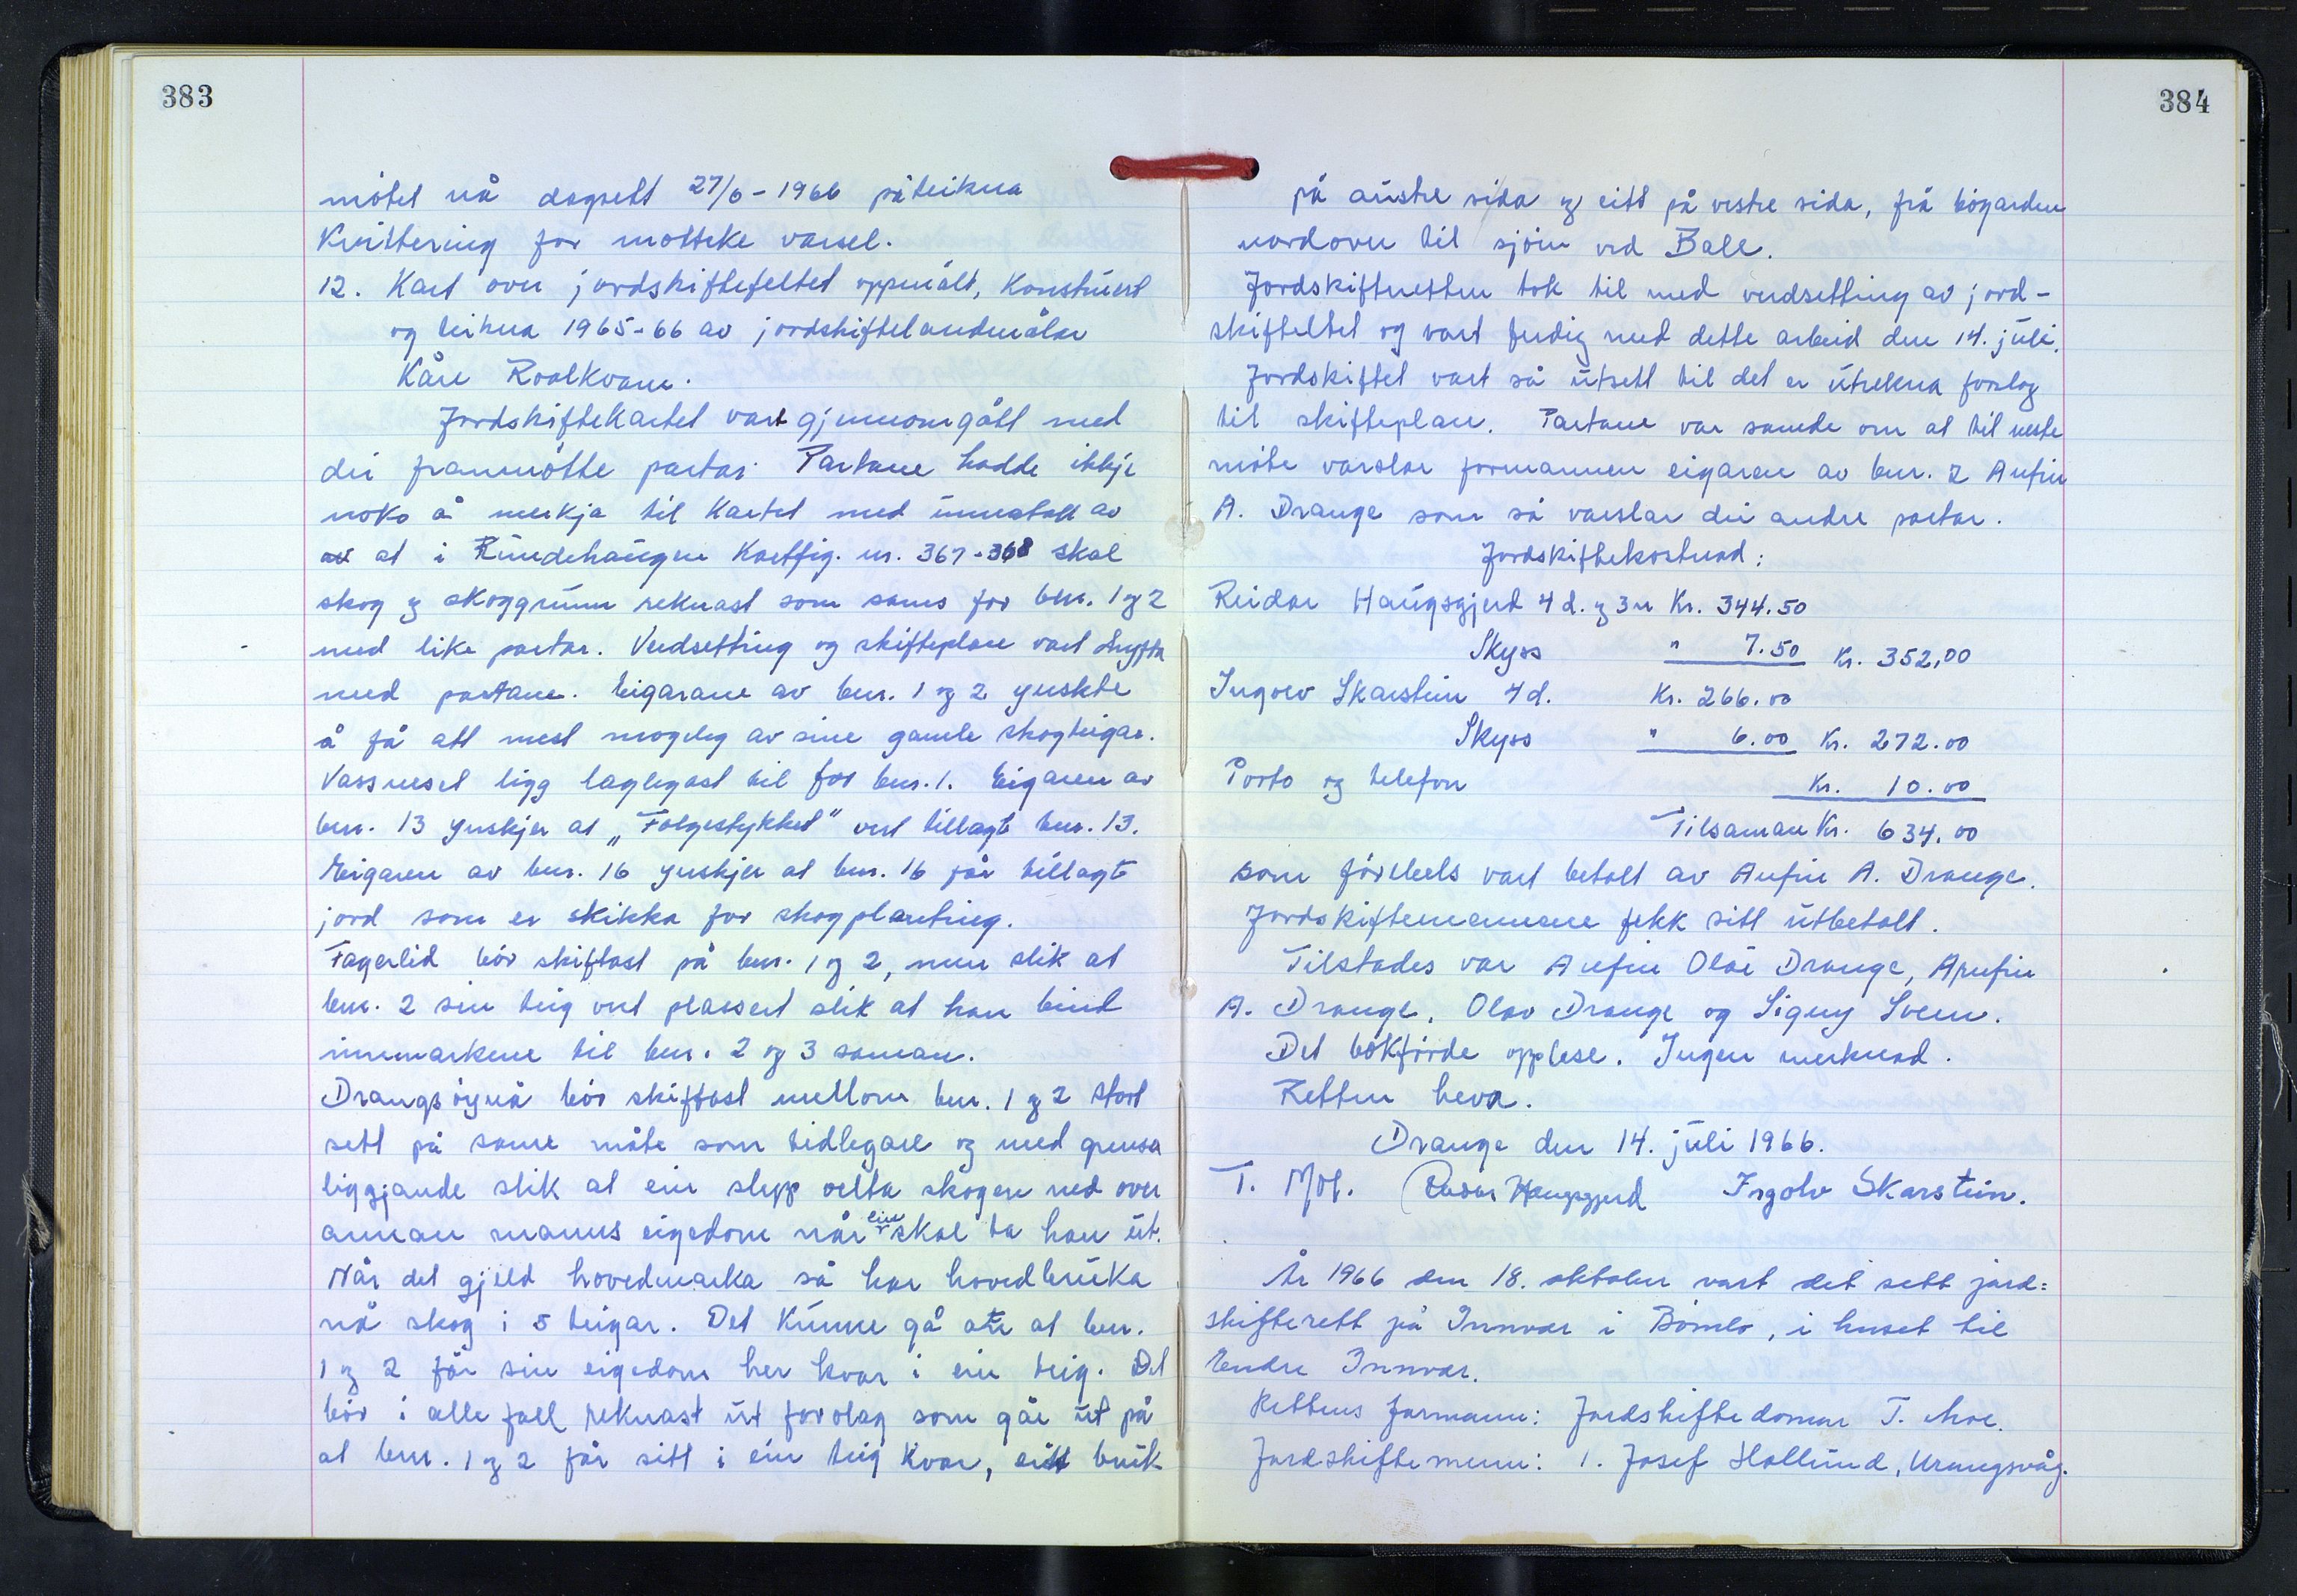 383
møtet nå dagsett 27/6-1966 påteikna
Kvittering for motteke varsel.
12. Kart over jordskiftefeltet oppmålt, Konstruert
og teikna 1965-66 av jordskiftelandmålar
Kåre Roalkvam.
Jordskiftekartet vart gjennomgått med
dei frammøtte partar. Partane hadde ikkje
noko å merkja til Kartet med unnatak av
at i Rundehaugen Kartfig. nr. 367-368 skal
skog og skoggrunn reknast som sams for bnr. 1 og 2
med like partar. Verdsetting og skifteplan vart drøfta
med partane. Eigarane av bnr. 1 og 2 ynskte
å få att mest mogeleg av sine gamle skogteigar.
Vassneset ligg laglegast til for bnr. 1. Eigaren av
bnr. 13 ynskjer at "Folgestykket" vert tillagt bnr. 13.
Eigaren av bnr. 16 ynskjer at bnr. 16 får tillagt
jord som er skikka for skogplanting.
Fagerlid bør skiftast på bnr. 1 og 2, men slik at
bnr. 2 sin teig vert plassert slik at han bind
innmarkene til bnr. 2 og 3 saman.
Drangsøynå bør skiftast mellom bnr. 1 og 2 stort
sett på same måte som tidlegare og med grensa
liggjande slik at ein slepp velta skogen ned over
annan manns eigedom når ein skal ta han ut.
Når det gjeld hovedmarka så har hovedbruka
nå skog i 5 teigar. Det Kunne gå an at bnr.
1 og 2 får sin eigedom her kvar i ein teig. Det
bør i alle fall reknast ut forslag som går ut på
at bnr. 1 og 2 får sitt i ein teig kvar, eitt bruk
384
på austre sida og eitt på vestre sida, frå bøgarden
nordover til sjøen ved Bale.
Jordskifteretten tok til med verdsetting av jord-
skiftefeltet og vart ferdig med dette arbeid den 14. juli.
Jordskiftet vart så utsett til det er utrekna forslag
til skifteplan. Partane var samde om at til neste
møte varslar formannen eigaren av bnr. 2 Anfin
A. Drange som så varslar dei andre partar.
Jordskiftekostnad:
Reidar Haugsgjerd 4 d. og 3 n Kr. 344.50
Skyss " 7.50 Kr. 352,00
Ingolv Skarstein 4 d. Kr. 266.00
Skyss " 6.00 Kr. 272.00
Porto og telefon Kr. 10.00
Tilsaman Kr. 634.00
som førebels vart betalt av Anfin A. Drange.
Jordskiftemennene fekk sitt utbetalt.
Tilstades var Anfin Olai Drange, Anfin
A. Drange, Olav Drange og Signy Sveen.
Det bokførde opplese. Ingen merknad.
Retten heva.
Drange den 14. juli 1966.
T. Moe. Reidar Haugsgjerd Ingolv Skarstein.
År 1966 den 18. oktober vart det sett jord=
skifterett på Innvær i Bømlo, i huset til
Endre Innvær.
Rettens formann: Jordskiftedomar T. Moe.
Jordskiftemenn: 1. Josef Hollund, Urangsvåg.